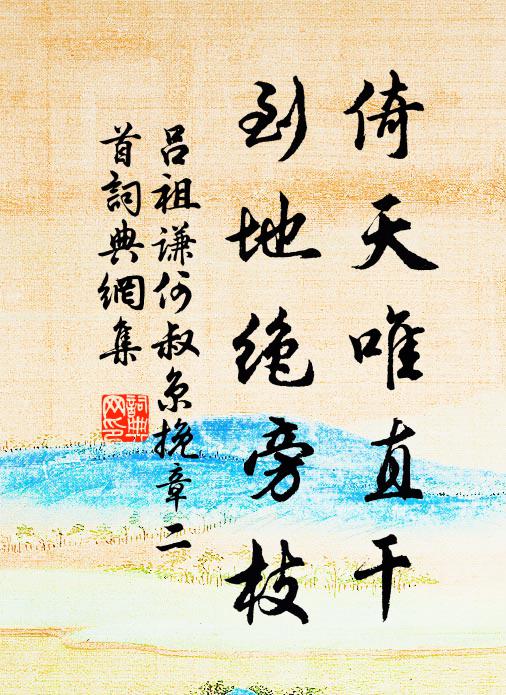 倚天唯直干
到地绝旁枝
吕祖谦何叔京挽章二
首詞典網集
詞典網印